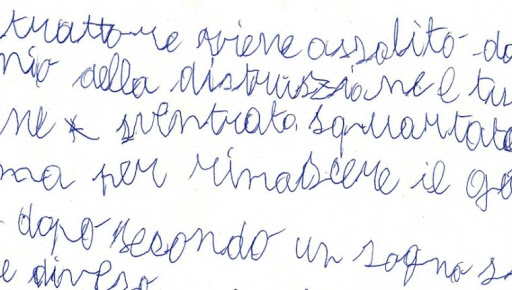 trattore viene assalito da
nio della distruszione e tu
ne sventrato squartato
ma per rinascere il go
dopo secondo un sogno s
e diverso